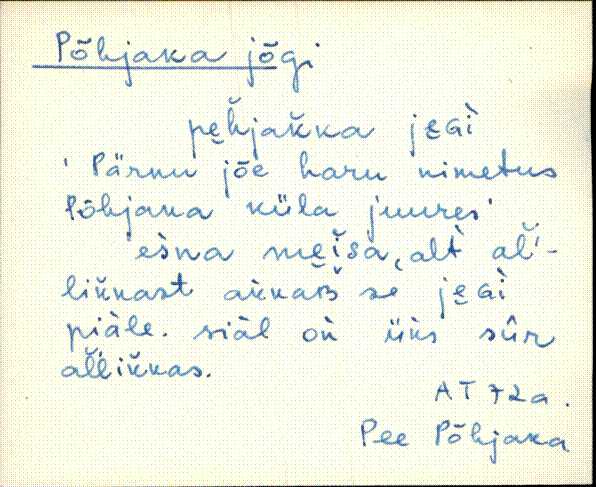 Põhjaka jõgi
pe̮h̆jak̆ka je̮ɢì
' Pärnu jõe haru nimetus
Põhjaka küla juures'
ès̀na me̮ĭsa, alt̀ al̆'i-
lik̆kast ak̀kaʙ se je̮ɢì
piàle. siàl oǹ ük̀s sûr
al̆l̆ik̆kas.
AT 72a.
Pee Põhjaka